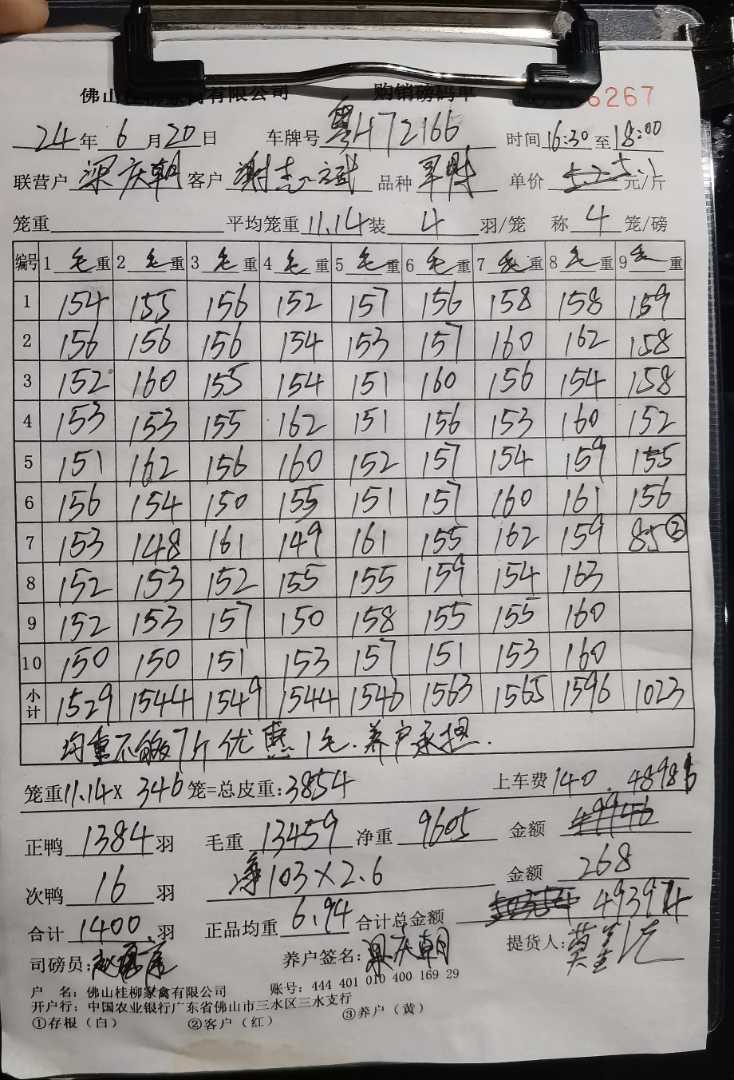 佛山桂柳家禽有限公司 购销磅码单 6267
24年6月20日 车牌号 粤472166 时间16:30至18:00
联营户 梁庆朝 客户 谢志斌 品种 单价 元/斤
笼重 平均笼重 11.14 装 4 羽/笼 称 4 笼/磅
编号 1 毛 重 2 毛 重 3 毛 重 4 毛 重 5 毛 重 6 毛 重 7 毛 重 8 毛 重 9 毛 重
1 154 155 156 152 157 156 158 158 159
2 156 156 156 154 153 157 160 162 158
3 152 160 155 154 151 160 156 154 158
4 153 153 155 162 151 156 153 160 152
5 151 162 156 160 152 157 154 159 155
6 156 154 150 155 151 157 160 161 156
7 153 148 161 149 161 155 162 159 85②
8 152 153 152 155 155 159 154 163
9 152 153 157 150 158 155 155 160
10 150 150 151 153 157 151 153 160
小计 1529 1544 1549 1544 1546 1563 1565 1596 1023
均重不够7斤优惠1毛.养户承担.
笼重11.14× 346 笼=总皮重:3854 上车费140. 48986
正鸭 1384 羽 毛重 13459 净重 9605 金额 49946
次鸭 16 羽 净103×2.6 金额 268
合计 1400 羽 正品均重 6.94 合计总金额 49394
司磅员: 养户签名: 梁庆朝 提货人:
户 名: 佛山桂柳家禽有限公司 账号: 444 401 010 400 169 29
开户行: 中国农业银行广东省佛山市三水区三水支行
①存根（白） ②客户（红） ③养户（黄）